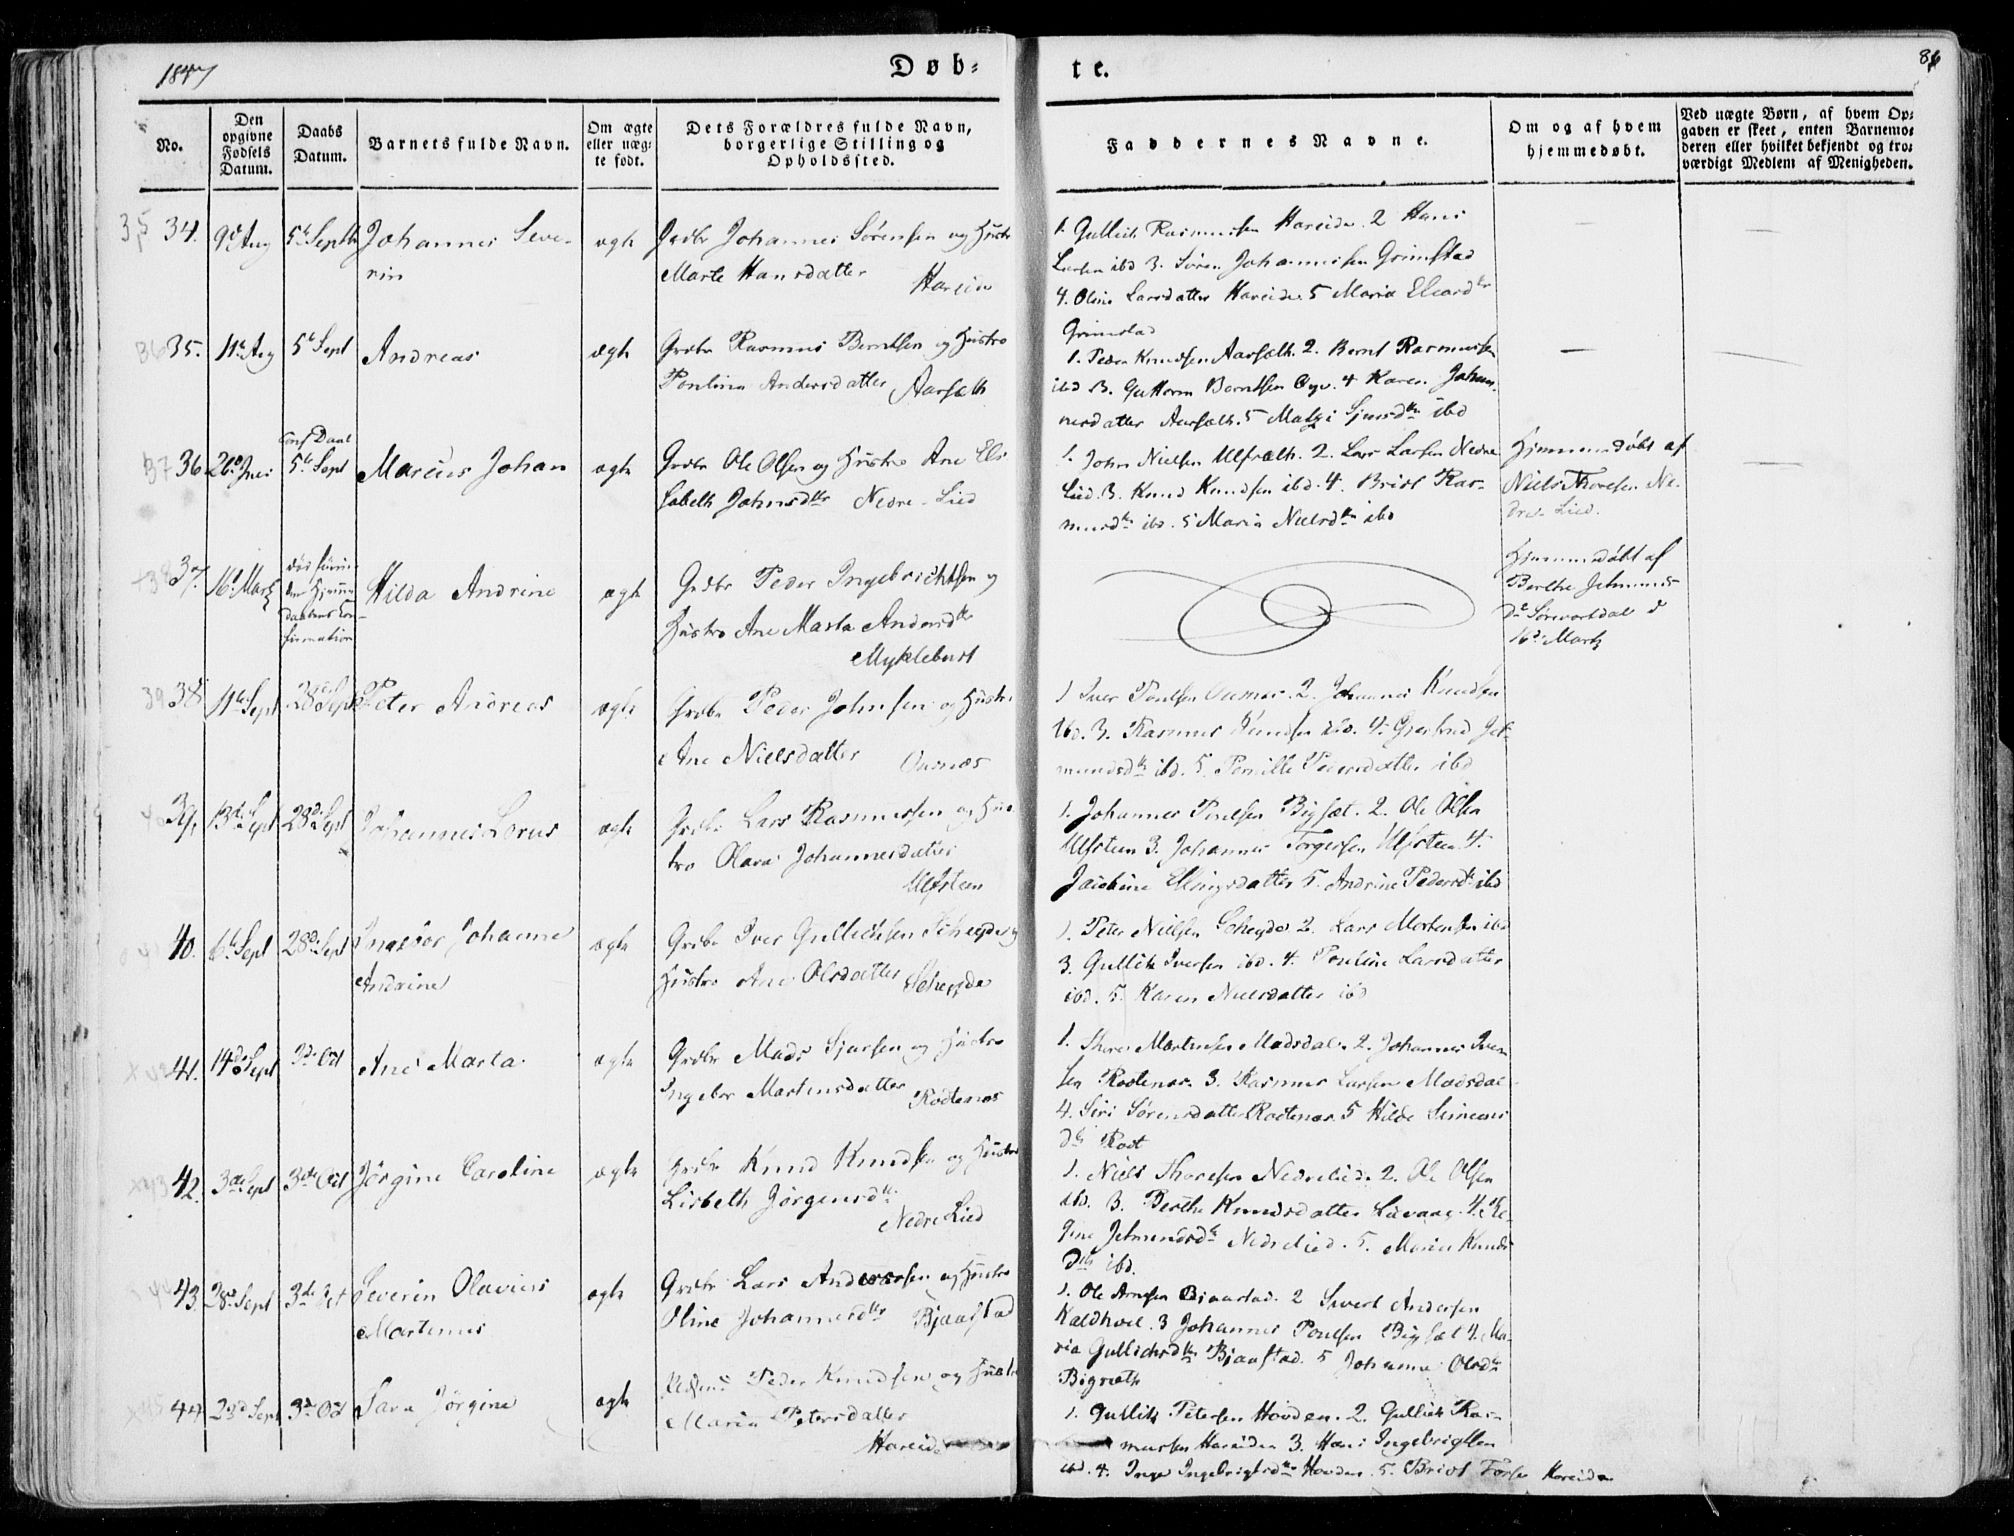 1847
Døb=
te.
86
No.
Den opgivne Fødsels Datum.
Daabs Datum.
Barnets fulde Navn.
Om ægte eller uæg= te født.
Dets Forældres fulde Navn, borgerlige Stilling og Opholdssted.
Faddernes Navne.
Om og af hvem hjemmedøbt.
Ved uægte Børn, af hvem Op= gaven er skeet, enten Barnemo= deren eller hvilket bekjendt og tro= værdigt Medlem af Menigheden.
35 34. 9d Aug 5t Septb Johannes Seve-
rin
ægte
Grdbr Johannes Sørensen og Hustr
Marte Hansdatter
Hareide
1. Gullich Rasmussen Hareide. 2 Hans
Larsen ibd 3. Søren Johannesen Grimstad
4. Oline Larsdatter Hareide. 5 Maria Elisardtr
Grimstad
—
—
36 35. 11t Aug 5t Sept Andreas
ægte
Grdbr Rasmus Berntsen og Hustro
Pouline Andersdatter Aarsæth
1. Peder Knudsen Aarsæth. 2. Bernt Rasmussen
ibd 3. Guttorm Berntsen 4 Karen Johan-
nesdatter Aarsæth. 5 Sjursdtr ibd
—
—
37 36 26d Juni
Conf Daab
5t Sept Marcus Johan
ægte
Grdbr Ole Olsen og Hustro Ane Eli
sabeth Johnsdtr Nedre-Lied
1. John Nielsen Ulfsæth. 2. Lars Larsen Nedre
Lied. 3. Knud Knudsen ibd. 4. Brit Ras-
musdtr ibd. 5 Maria Nielsdtr ibd
Hjemmedøbt af
Niels Thoresen Ne-
dre-Lied.
—
+38 37. 16d Marts
død før
den Hjemme
daabens Con-
firmation
Hilda Andrine
ægte
Grdbr Peder Ingebrichtsen og
Hustro Ane Marta Andersdtr
Myklebust
Hjemmedøbt af
Berthe Jetmunds-
dtr Sørevartdal d
16d Marts
39 38 11t Sept 28d Sept Peter Andreas
ægte
Grdbr Peder Johnsen og Hustro
Ane Nielsdatter
1 Iver Poulsen 2. Johannes Knudsen
ibd. 3. Rasmus Knudsen ibd. 4. Gjertrud Jet-
mundsdtr ibd. 5. Pernille Pedersdatter ibd
40 39. 13d Sept 28d Sept Johannes Lorus
ægte
Grdbr Lars Rasmussen og Hus
tro Olava Johannesdatter
Ulfsteen
1. Johannes Poulsen Bigsæt. 2. Ole Olsen
Ulfsteen 3. Johannes Torgersen Ulfsteen 4.
Jacobine Ellingsdatter 5. Andrine Pedersdtr ibd
41 40. 6t Sept 28d Sept Ingebor Johanne
Andrine
ægte
Grdbr Iver Gullichsen Scheyde og
Hustro Ane Olsdatter Scheyde
1. Peter Nielsen Scheyde 2. Lars Mortensen ibd
3. Gullik Iversen ibd. 4. Pouline Larsdatter
ibd. 5. Karen Nielsdatter ibd
x42 41. 14d Sept 3d Oct Ane Marta
ægte
Grdbr Mads Sjursen og Hustro
Ingebor Martensdatter
Rødtenæs
1. Martinsen Madsdal. 2. Johannes Iver
sen Rødtenæs. 3. Rasmus Larsen Madsdal
4. Siri Sørensdatter Rødtenæs 5 Hilde Simens
dtr
x43 42. 3d Sept 3d Oct Jørgine Caroline
ægte
Grdbr Knud Knudsen og Hustro
Lisbeth Jørgensdtr
Nedre Lied
1. Niels Thoresen Nedrelied. 2. Ole Olsen
ibd. 3. Berthe Knudsdatter Liavaag. 4. Re-
gine Jetmundsdtr Nedrelied. 5. Maria Knuds
dtr ibd.
44 43 28d Sept 3d Oct Severin Olavius
Martinus
ægte
Grdbr Lars Anderssen og Hustro
Oline Johannesdtr Bjaastad
1. Ole Arnesen Bjaastad. 2 Sivert Andersen
Kaldhol. 3 Johannes Poulsen Bigsæt 4. Ma-
ria Gullichsdtr Bjaastad. 5 Johanne Olsdtr
Bigsæth
x45 44 23d Sept 3d Oct Sara Jørgine
ægte
Peder Knudsen og Hustr
Maria Petersdatter
Hareide
1. Gullik Petersen Hovden. 2. Gullich Ras-
mussen Hareide 3. Hans Ingebrigtsen
ibd. 4. Inge Ingebrigtsdtr Hovden. 5. Brit Hareide